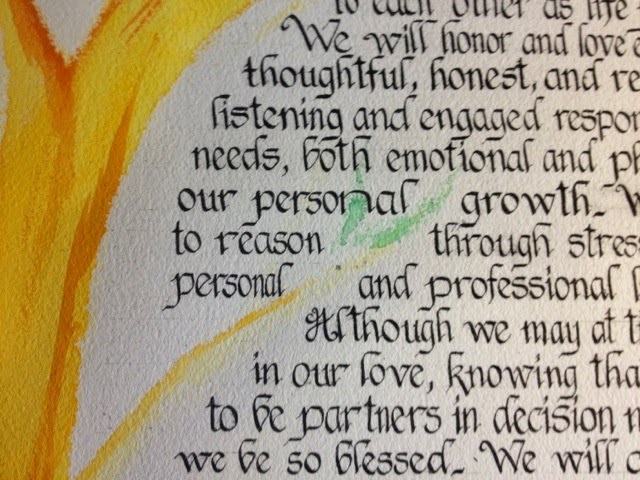 to each other as life
We will honor and love
thoughtful, honest, and re
listening and engaged respon
needs, both emotional and ph
our personal growth. W
to reason through stres
personal and professional
Although we may at t
in our love, knowing tha
to be partners in decision
we be so blessed. We will